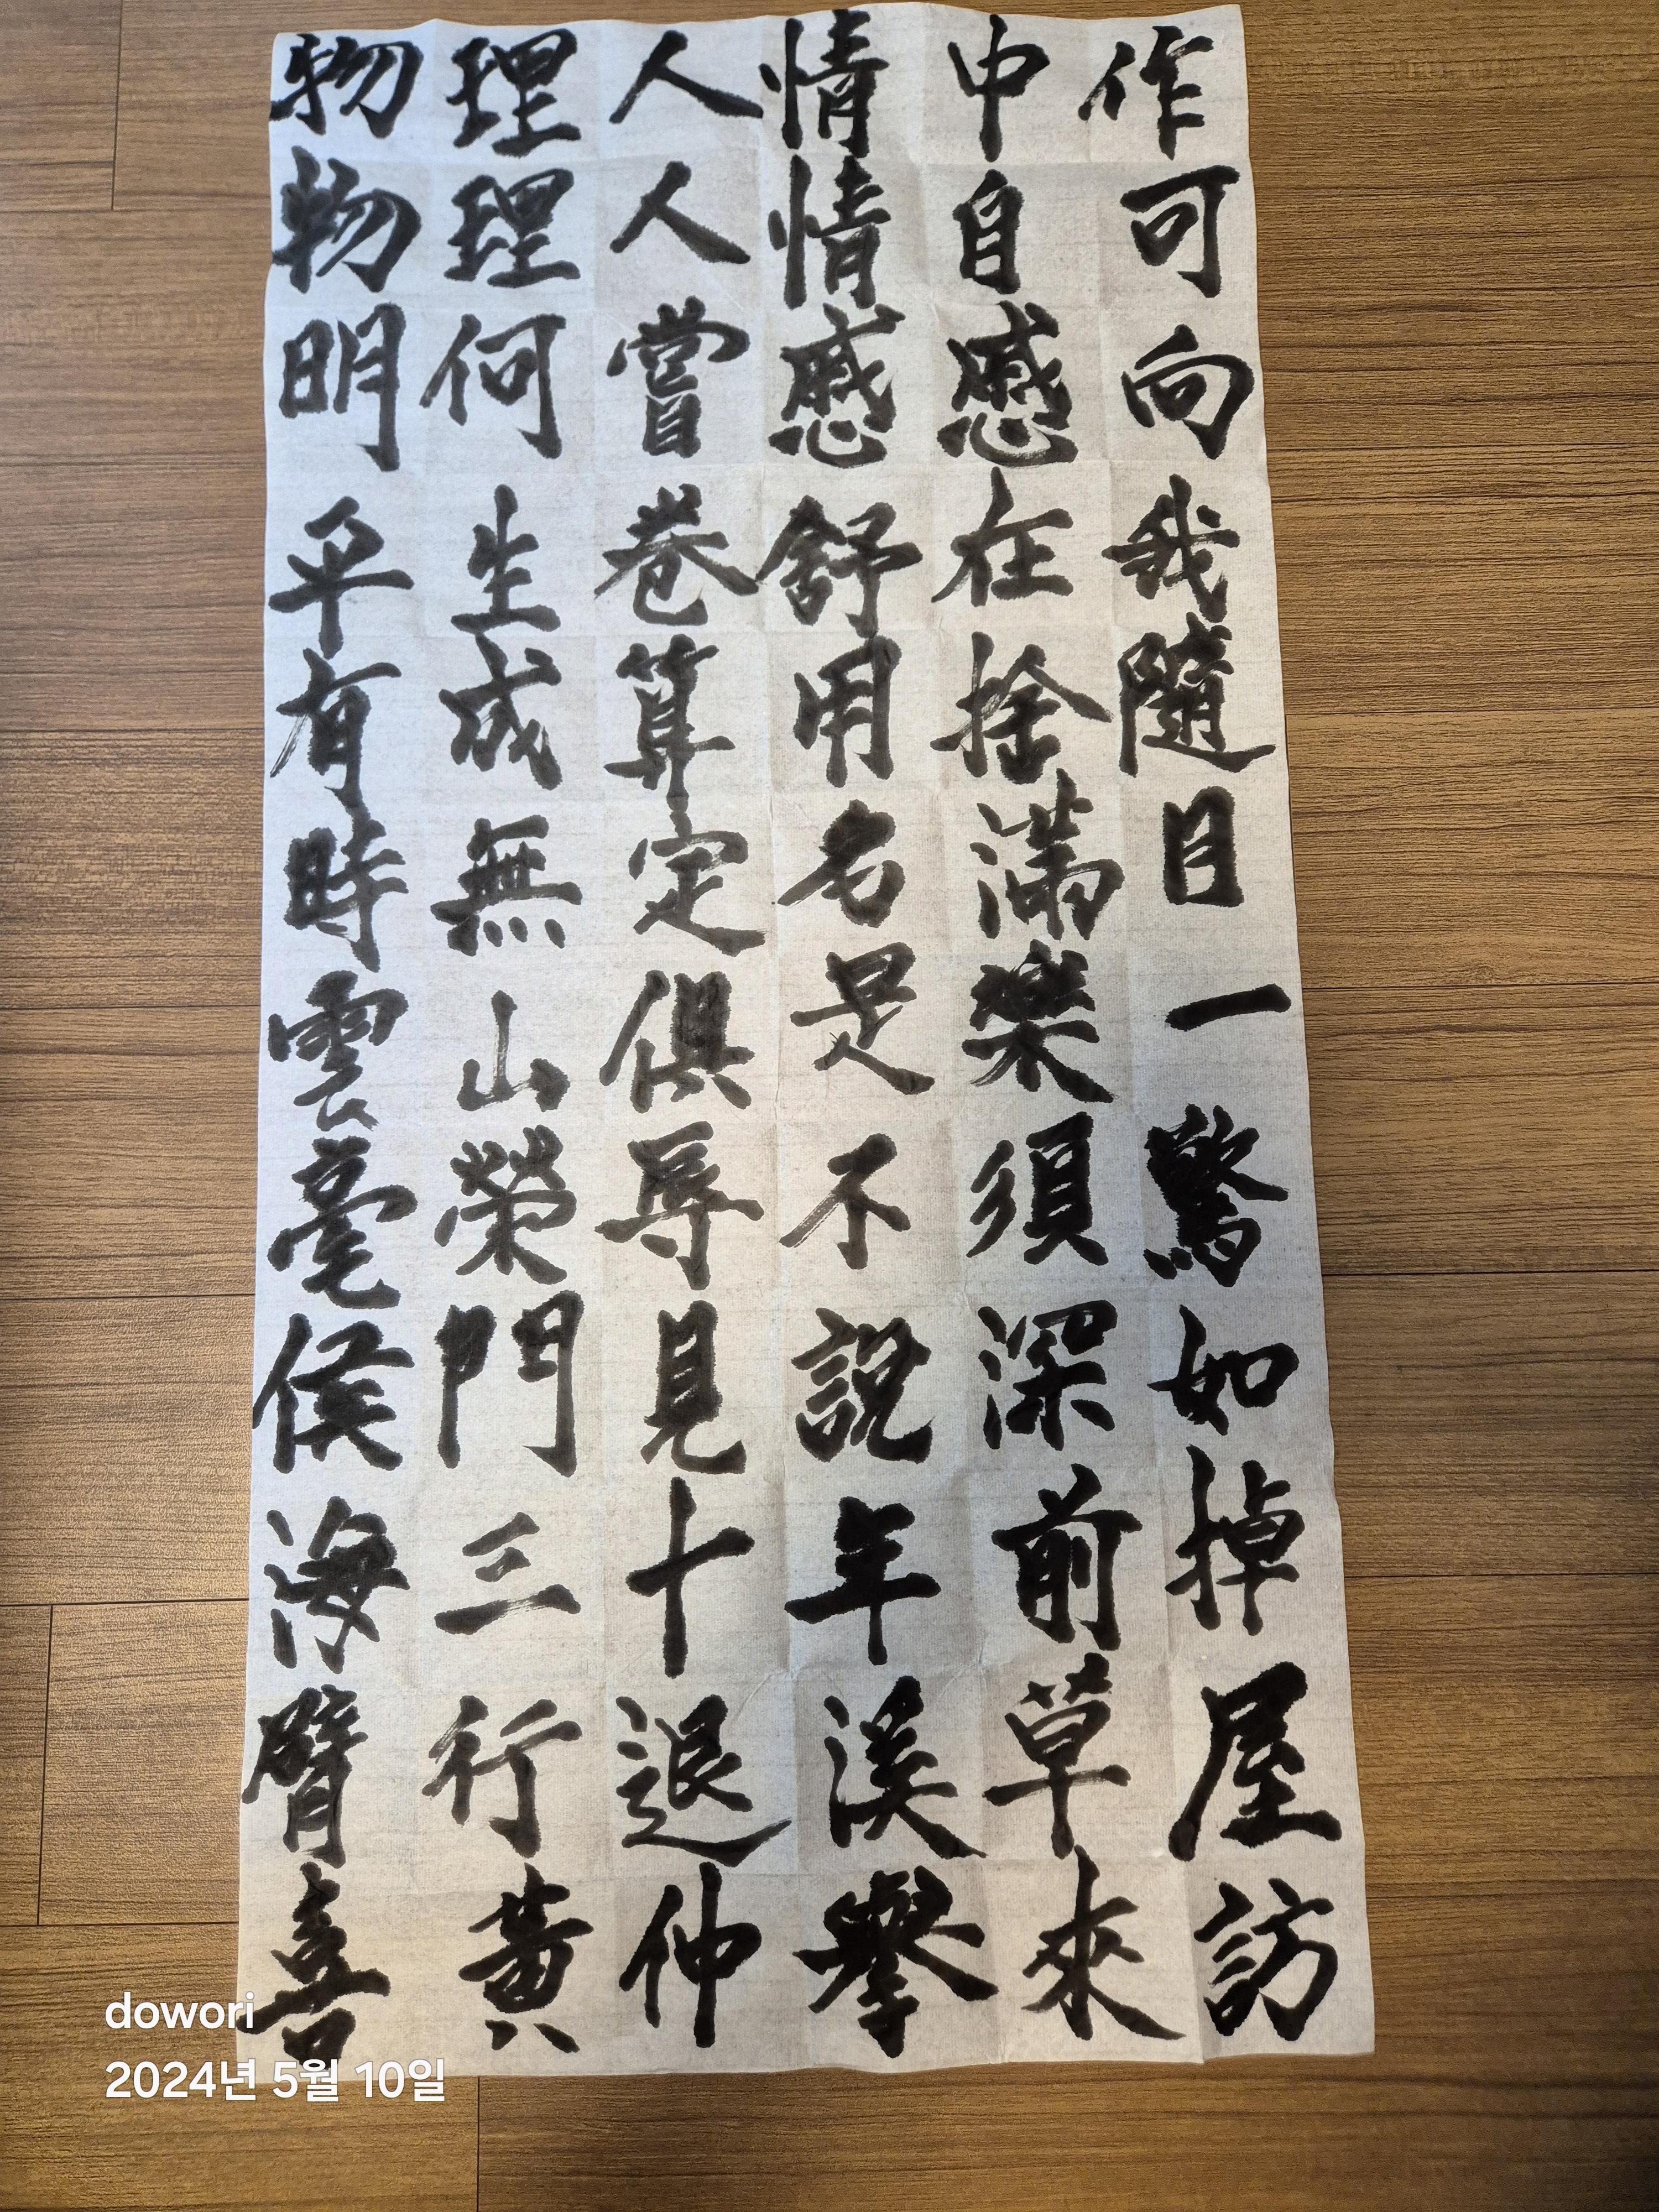 作可向我隨目一驚如掉屋訪
中自慼在捨滿樂須深前草來
情情慼舒用名是不說年溪擧
人人嘗卷算定俱辱見十退仲
理理何生成無山榮門三行黃
物物明平有時雲毫侯海臂喜
dowori
2024년 5월 10일